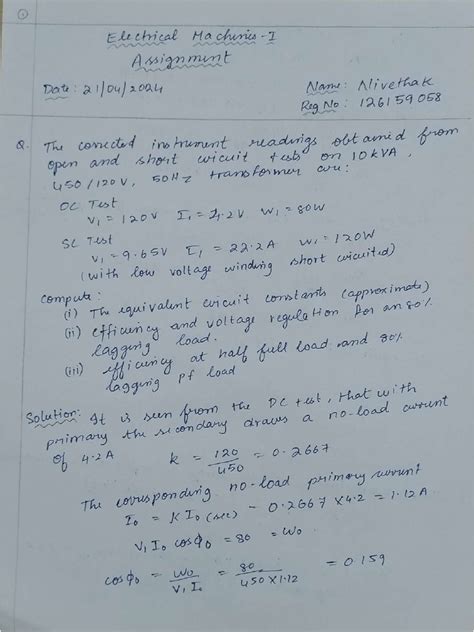 1
Electrical Machines-I
Assignment
Date: 21/04/2024
Name: Nivethak
Reg No: 126159058
Q. The corrected instrument readings obtained from
open and short circuit tests on 10 kVA,
450/120V, 50Hz transformer are:
OC Test
V₁ = 120V I₁ = 4.2V W₁ = 80W
SC Test
V₁ = 9.65V I₁ = 22.2A W₁ = 120W
(with low voltage winding short circuited)
compute:
(i) The equivalent circuit constants (approximate)
(ii) efficiency and voltage regulation for an 80%
lagging load.
(iii) efficiency at half full load and 80%
lagging pf load
Solution: It is seen from the OC test, that with
primary the secondary draws a no-load current
of 4.2A
k = 120/450 = 0.2667
The corresponding no-load primary current
I₀ = K I₀ (sec) = 0.2667 × 4.2 = 1.12A
V₁ I₀ cosϕ₀ = 80 = W₀
cosϕ₀ = W₀/V₁ I₀ = 80/450×1.12 = 0.159